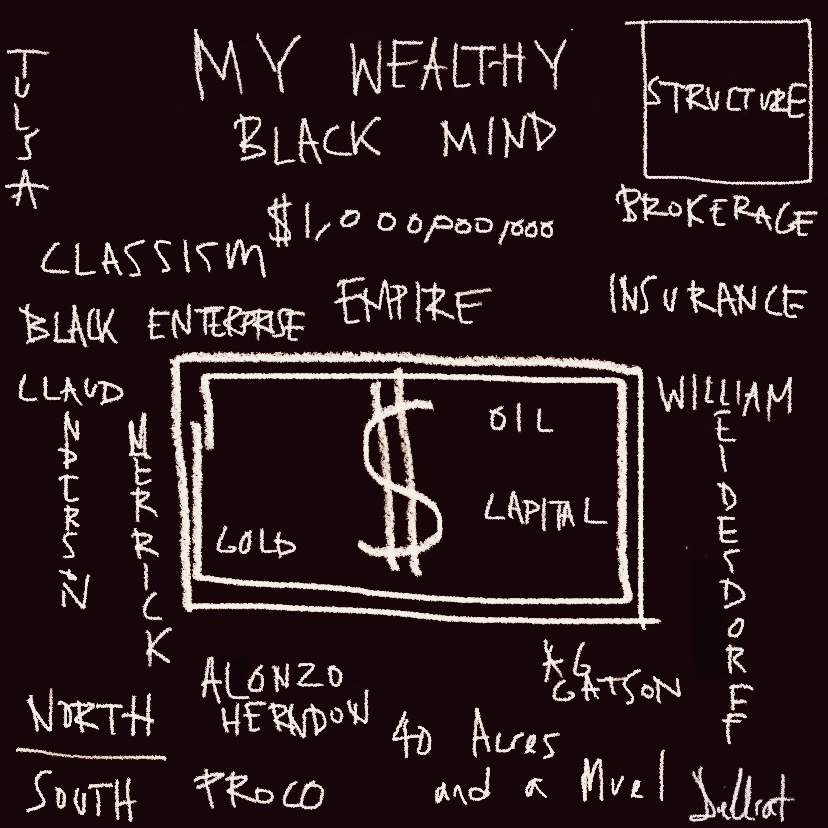 TULSA
MY WEALTHY
BLACK MIND
STRUCTURE
BROKERAGE
$1,000,000,000
CLASSISM
BLACK ENTERPRISE
EMPIRE
INSURANCE
CLAUD
MERRICK
$
OIL
CAPITAL
GOLD
WILLIAM
LEIDESDORFF
ALONZO
HERNDOW
AG
GATSON
NORTH
SOUTH
PROCO
40 Acres
and a Muel